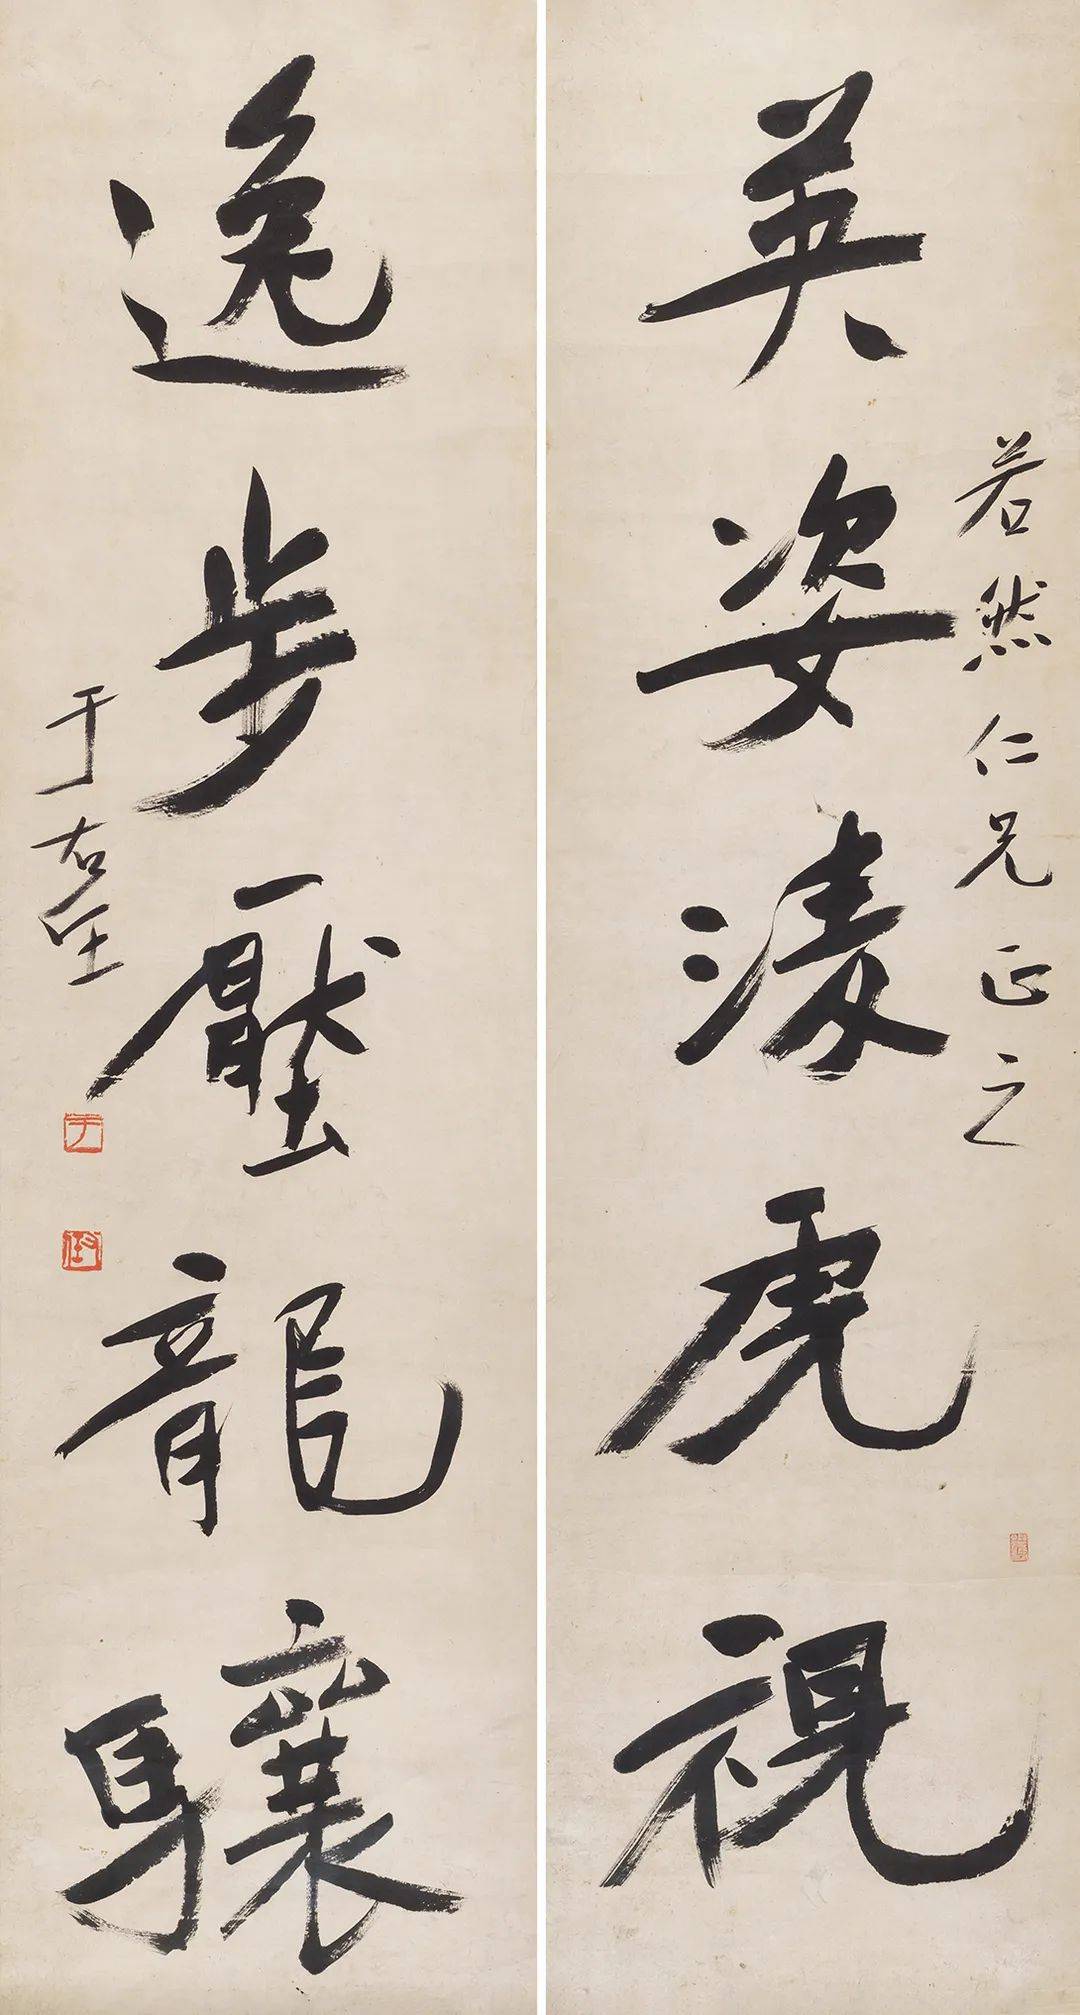 英姿凌虎視
若然仁兄正之
逸步壓龍驤
于右任